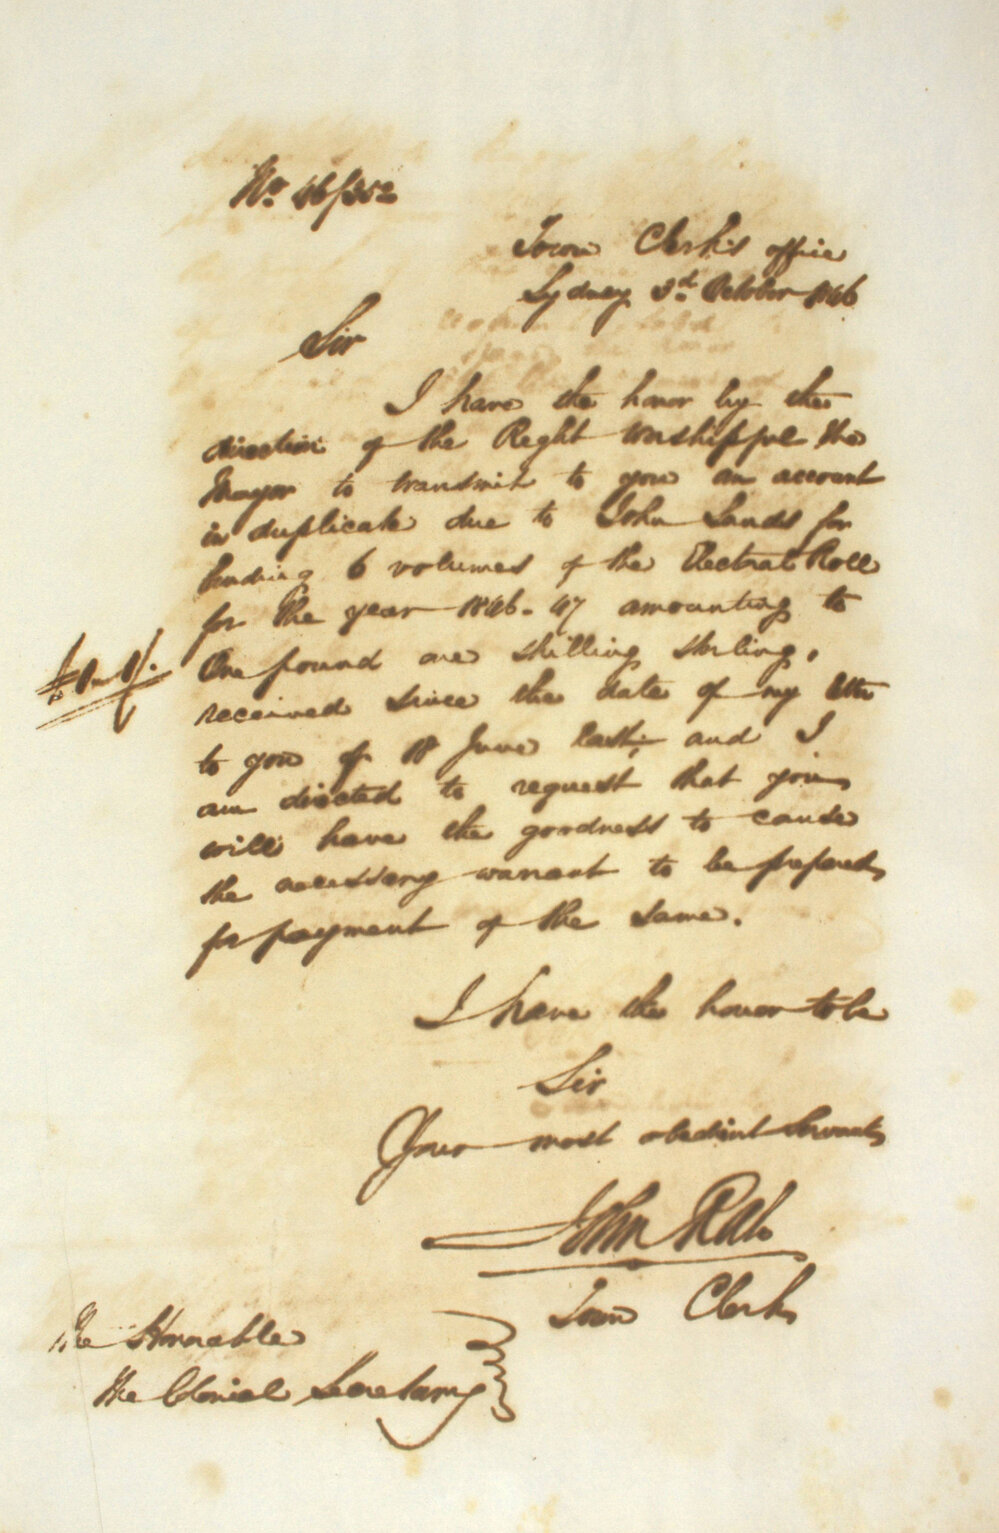 No. 46/352
Town Clerk's office
Sydney 3d. October 1846
Sir
I have the honor by the
direction of the Right Worshipful the
Mayor to transmit to you an account
in duplicate due to John Sands for
binding 6 volumes of the Electoral Roll
for the year 1846-47 amounting to
£1-1/.
One pound one shilling sterling,
received since the date of my letter
to you of 18 June last, and I
am directed to request that you
will have the goodness to cause
the necessary warrant to be prepared
for payment of the same.
I have the honor to be
Sir
Your most obedient Servant
John Rae
Town Clerk
The Honorable
The Colonial Secretary